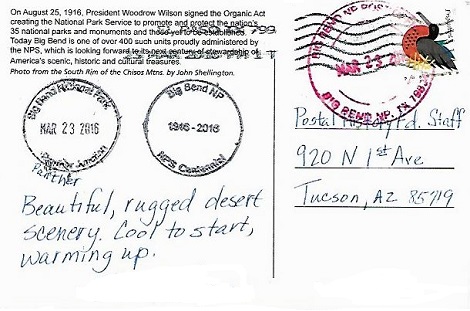 On August 25, 1916, President Woodrow Wilson signed the Organic Act
creating the National Park Service to promote and protect the nation's
35 national parks and monuments and those yet to be established.
Today Big Bend is one of over 400 such units proudly administered by
the NPS, which is looking forward to its next century of stewardship of
America's scenic, historic and cultural treasures.
Photo from the South Rim of the Chisos Mtns. by John Shellington.
Big Bend National Park
MAR 23 2016
Panther Junction
Big Bend NP
1916-2016
NPS Centennial
Panther
Beautiful, rugged desert
scenery. Cool to start,
warming up.
BIG BEND NP
MAR 23
BIG BEND NP, TX
Postal History Fd. Staff
920 N 1st Ave
Tucson, AZ 85719